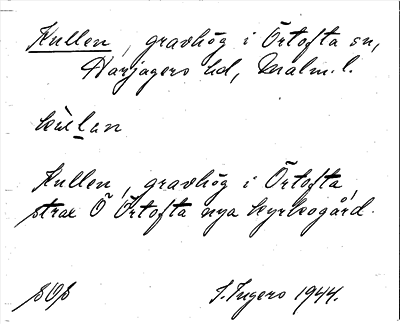 Kullen, gravhög i Örtofta sn,
Harjagers hd, Malm. l.
kùlan
Kullen, gravhög i Örtofta,
strax Ö Örtofta nya kyrkogård.
SOS
I. Ingers 1944.